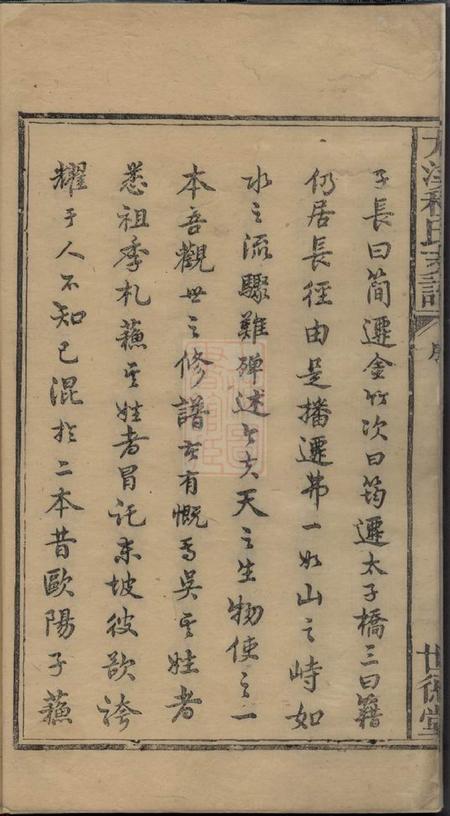 子長曰簡遷金竹次曰筠遷太子橋三曰籍
仍居長徑由是播遷弗一如山之峙如
水之流驟難殫述兮夫天之生物使之一
本吾觀世之修譜者有慨焉吳其姓者
悉祖季札蘇其姓者冒託東坡彼欲誇
耀于人不知已混於二本昔歐陽子蘇
程氏支譜
序
世德堂